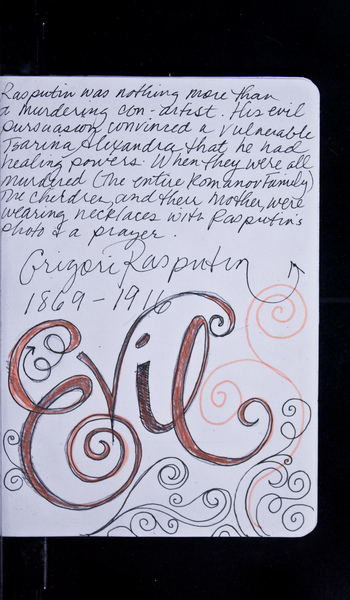 Rasputin was nothing more than
a murdering con-artist. His evil
persuasion convinced a vulnerable
Tsarina Alexandra that he had
healing powers. When they were all
murdered (The entire Romanov Family)
The cherdren, and their Mother, were
wearing necklaces with Rasputin's
photo & a prayer.
Grigori Rasputin
1869-1916
Evil